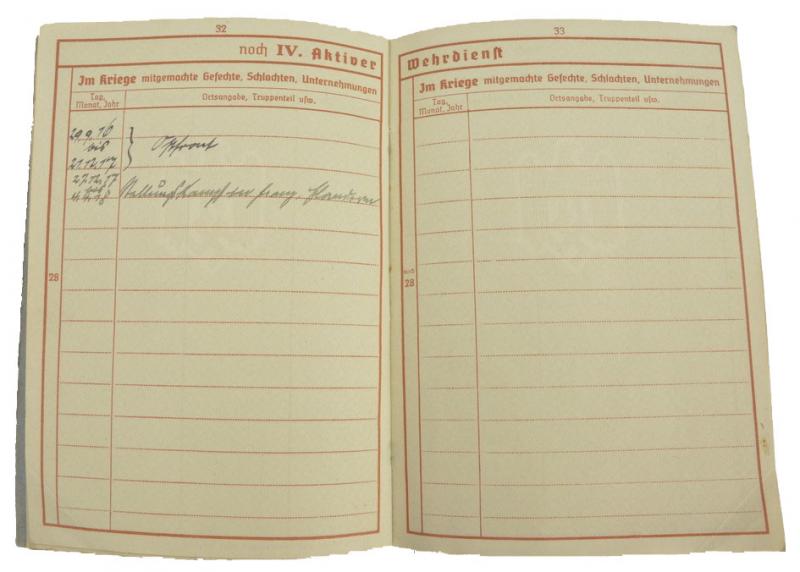 32
noch IV. Aktiver
Im Kriege mitgemachte Gefechte, Schlachten, Unternehmungen
Tag, Monat, Jahr
Ortsangabe, Truppenteil usw.
29.9.16
bis
21.12.17
Ostfront
27.12.17
bis
4.4.18
Stellungskampf in franz. Flandern
28
33
Wehrdienst
Im Kriege mitgemachte Gefechte, Schlachten, Unternehmungen
Tag, Monat, Jahr
Ortsangabe, Truppenteil usw.
noch
28